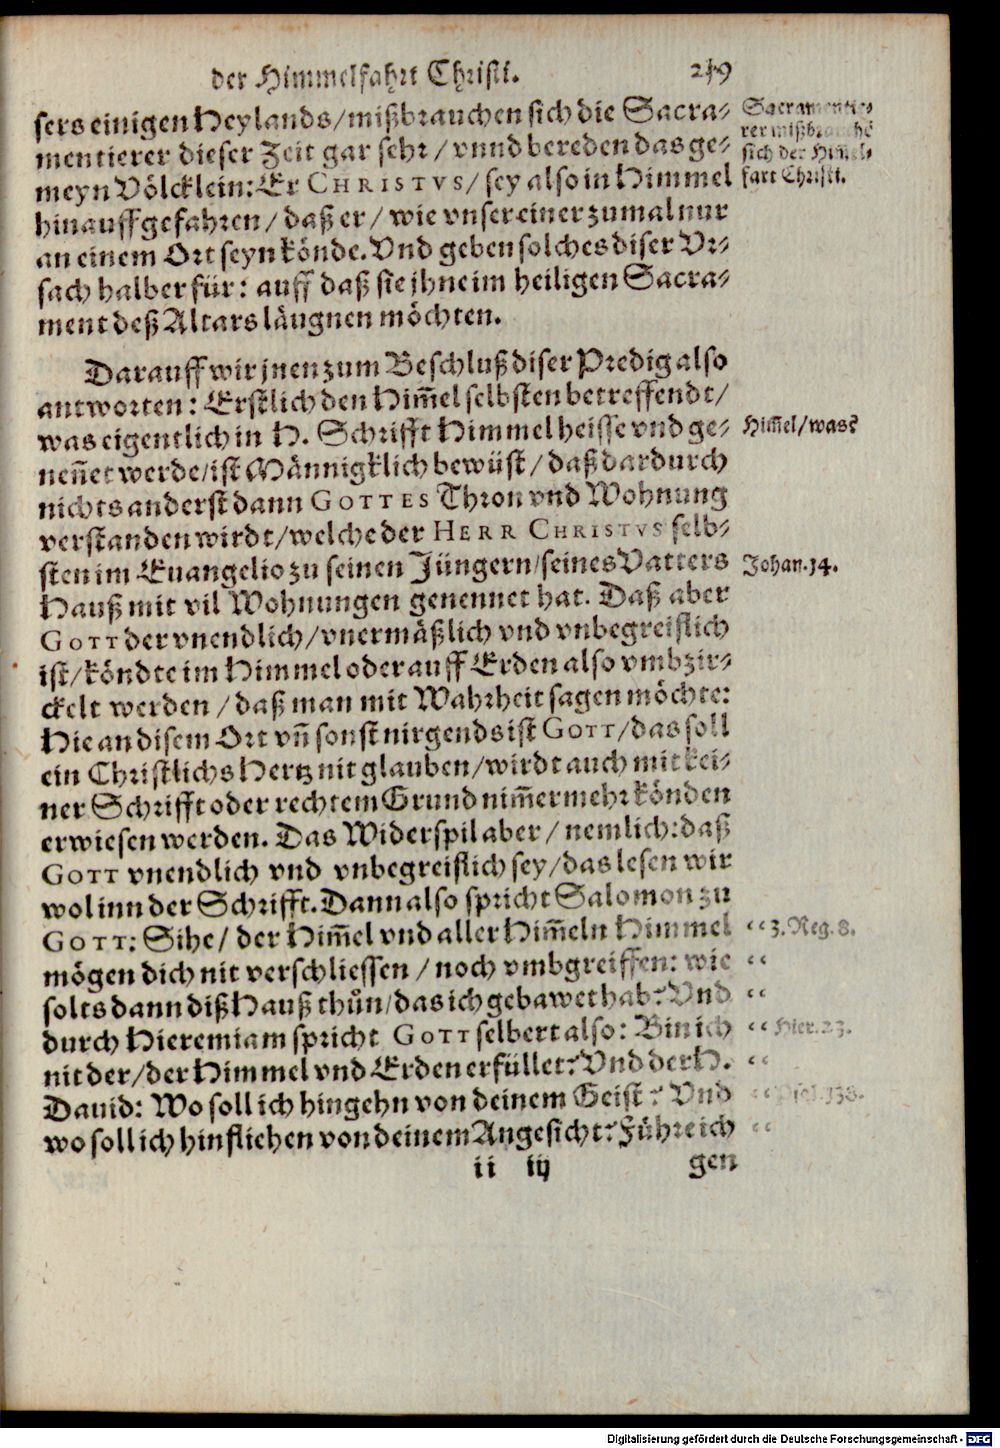 der Himmelfahrt Christi.
sers einigen Heylands/mißbrauchen sich die Sacra-
mentierer dieser Zeit gar sehr/vnnd bereden das ge-
meyn Völcklein: Er CHRISTVS/sey also in Himmel
hinauff gefahren/daß er/wie vnser einer zumal nur
an einem Ort seyn könde. Vnd geben solches diser Vr-
sach halber für: auff daß sie jhne im heiligen Sacra-
ment deß Altars läugnen möchten.
Sacramentie-
rer mißbrauchē
sich der Him̄el-
fart Christi.
Darauff wir jnen zum Beschluß diser Predig also
antworten: Erstlich den Him̄el selbsten betreffendt/
was eigentlich in H. Schrifft Himmel heisse vnd ge-
nen̄et werde/ist Männigklich bewüst/daß dardurch
nichts anderst dann GOTTES Thron vnd Wohnung
verstanden wirdt/welche der HERR CHRISTVS selb-
sten im Euangelio zu seinen Jüngern/seines Vatters
Hauß mit vil Wohnungen genennet hat. Daß aber
GOTT der vnendlich/vnermäßlich vnd vnbegreiflich
ist/köndte im Himmel oder auff Erden also vmbzir-
ckelt werden/daß man mit Wahrheit sagen möchte:
Hie an disem Ort vn̄ sonst nirgends ist GOTT/das soll
ein Christlichs Hertz nit glauben/wirdt auch mit kei-
ner Schrifft oder rechtem Grund nim̄ermehr könden
erwiesen werden. Das Widerspil aber/nemlich: daß
GOTT vnendlich vnd vnbegreiflich sey/das lesen wir
wol inn der Schrifft. Dann also spricht Salomon zu
GOTT: Sihe/der Him̄el vnd aller Him̄eln Himmel
mögen dich nit verschliessen/noch vmbgreiffen: wie
solts dann diß Hauß thůn/das ich gebawet hab? Vnd
durch Hieremiam spricht GOTT selber also: Bin ich
nit der/der Himmel vnd Erden erfüllet? Vnd der H.
Dauid: Wo soll ich hingehn von deinem Geist? Vnd
wo soll ich hinfliehen von deinem Angesicht? Führe ich
Him̄el/was?
Johan. 14.
“ 3. Reg. 8.
“
“
“ Hier. 23.
“
“ Psal. 138.
“
ii iij
gen
Digitalisierung gefördert durch die Deutsche Forschungsgemeinschaft - DFG